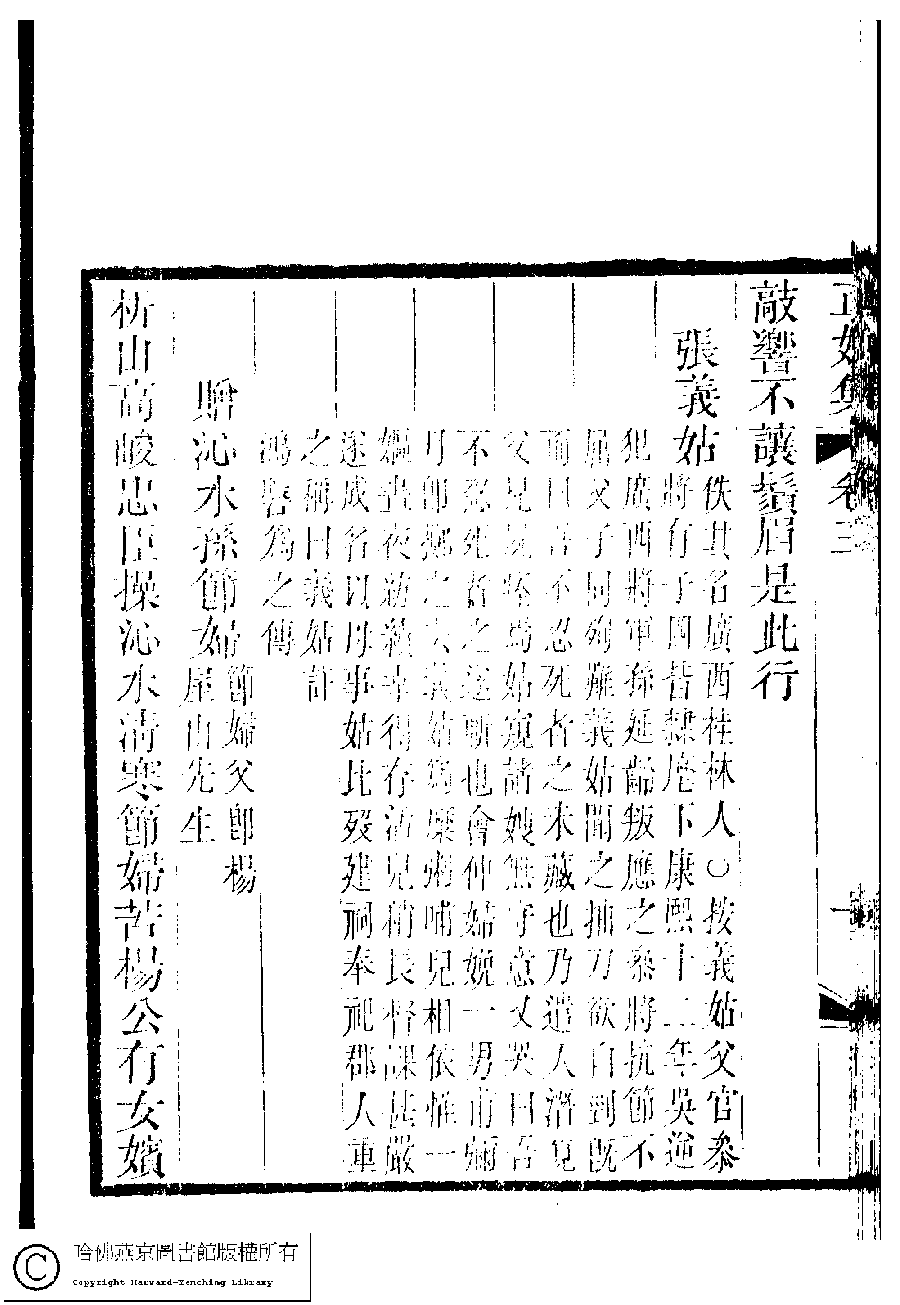 正始集 卷三
敲響不讓鬚眉是此行
張義姑
佚其名廣西桂林人○按義姑父官叅
將有子四皆隸麾下康熙十二年吳逆
犯廣西將軍孫延齡叛應之叅將抗節不
屈父子同殉難義姑聞之抽刀欲自刎既
而曰吾不忍死者之未藏也乃遣人潛覓
父兄屍瘞焉姑窺諸嫂無守意又哭曰吾
不忍死者之遂斬也會仲婦娩一男甫彌
月卽鄉之去義姑為糜粥哺兒相依惟一
嫗晝夜紡績幸得存活兒稍長督課甚嚴
遂成名以母事姑比歿建祠奉祀郡人重
之稱曰義姑許
鴻磐為之傳
贈沁水孫節婦
節婦父卽楊
屋山先生
析山高峻忠臣操沁水清寒節婦苦楊公有女嬪
哈佛燕京圖書館版權所有
Copyright Harvard-Yenching Library